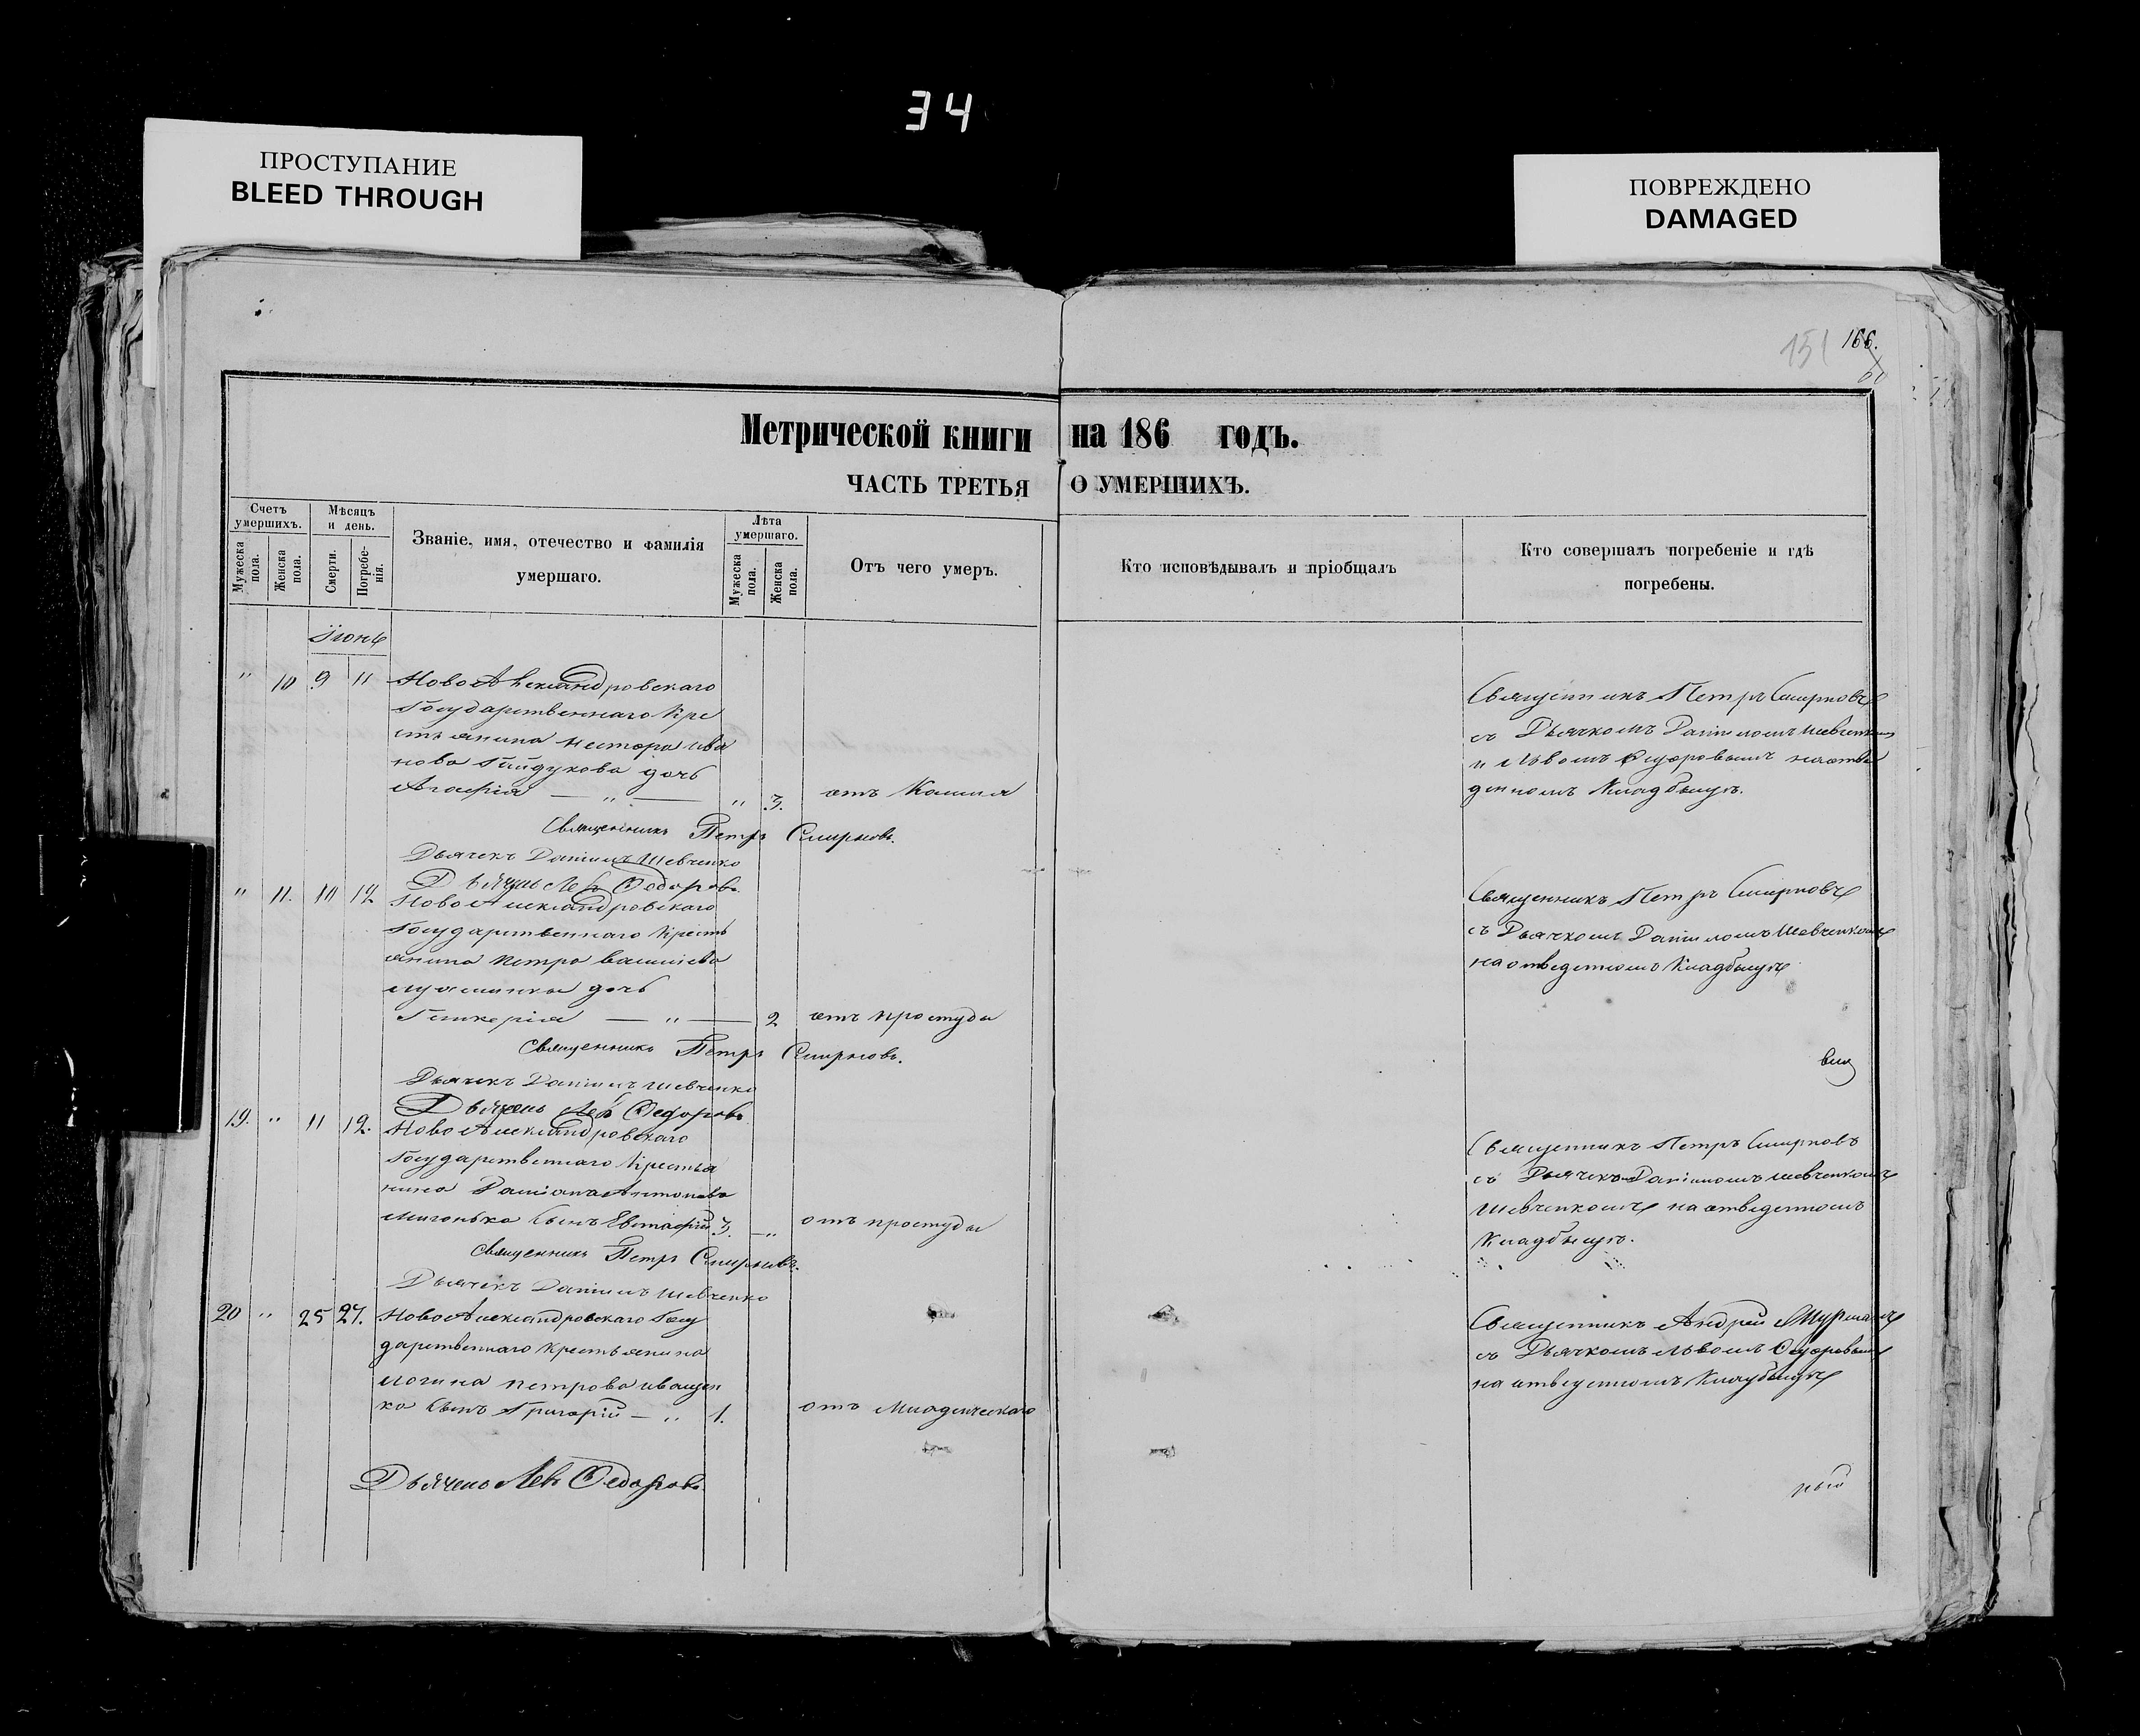 34
ПРОСТУПАНИЕ
BLEED THROUGH
ПОВРЕЖДЕНО
DAMAGED
151 166.
Метрической книги на 186 годъ.
ЧАСТЬ ТРЕТЬЯ О УМЕРШИХЪ.
Счетъ умершихъ.
Мужеска пола.
Женска пола.
Мѣсяцъ и день.
Смерти.
Погребенія.
Званіе, имя, отечество и фамилія
умершаго.
Лѣта умершаго.
Мужеска пола.
Женска пола.
Отъ чего умеръ.
Кто исповѣдывалъ и пріобщалъ
Кто совершалъ погребеніе и гдѣ
погребены.
Іюнь
" 10 9 11 НовоАлександровскаго
Государственнаго Кре
стьянина Нестора Ива
нова Гайдукова дочь
Агафія — " — " 3. отъ Кашля
Священникъ Петръ Смирновъ
съ Дьячкомъ Даніиломъ Шевченком
и Львомъ Федоровымъ на отве
денномъ Кладбищѣ.
Священникъ Петръ Смирновъ.
Дьячекъ Даніилъ Шевченко
Дьячекъ Левъ Федоровъ.
" 11. 10 12 НовоАлександровскаго
Государственнаго Кресть
янина Петра Васильева
дочь
Гликерія — " — 2 отъ простуды
Священникъ Петръ Смирновъ
съ Дьячкомъ Даніиломъ Шевченкомъ
на отведенномъ Кладбищѣ
Священникъ Петръ Смирновъ.
Дьячекъ Даніилъ Шевченко
Дьячекъ Левъ Федоровъ
19. " 11 12. НовоАлександровскаго
Государственнаго Крестья
нина Даміана Антонова
сынъ Евстафій 3. — " отъ простуды
Священникъ Петръ Смирновъ
съ Дьячекъ Даніиломъ Шевченкомъ
Шевченкомъ на отведенномъ
Кладбищѣ.
Священникъ Петръ Смирновъ.
Дьячекъ Даніилъ Шевченко
20 " 25 27. НовоАлександровскаго Госу
дарственнаго Крестьянина
Логина Петрова Иващен
ко сынъ Григорій — " 1. отъ Младенческаго
Священникъ Андрей
съ Дьячкомъ Львомъ Федоровым
на отведенномъ Кладбищѣ
Дьячекъ Левъ Федоровъ.